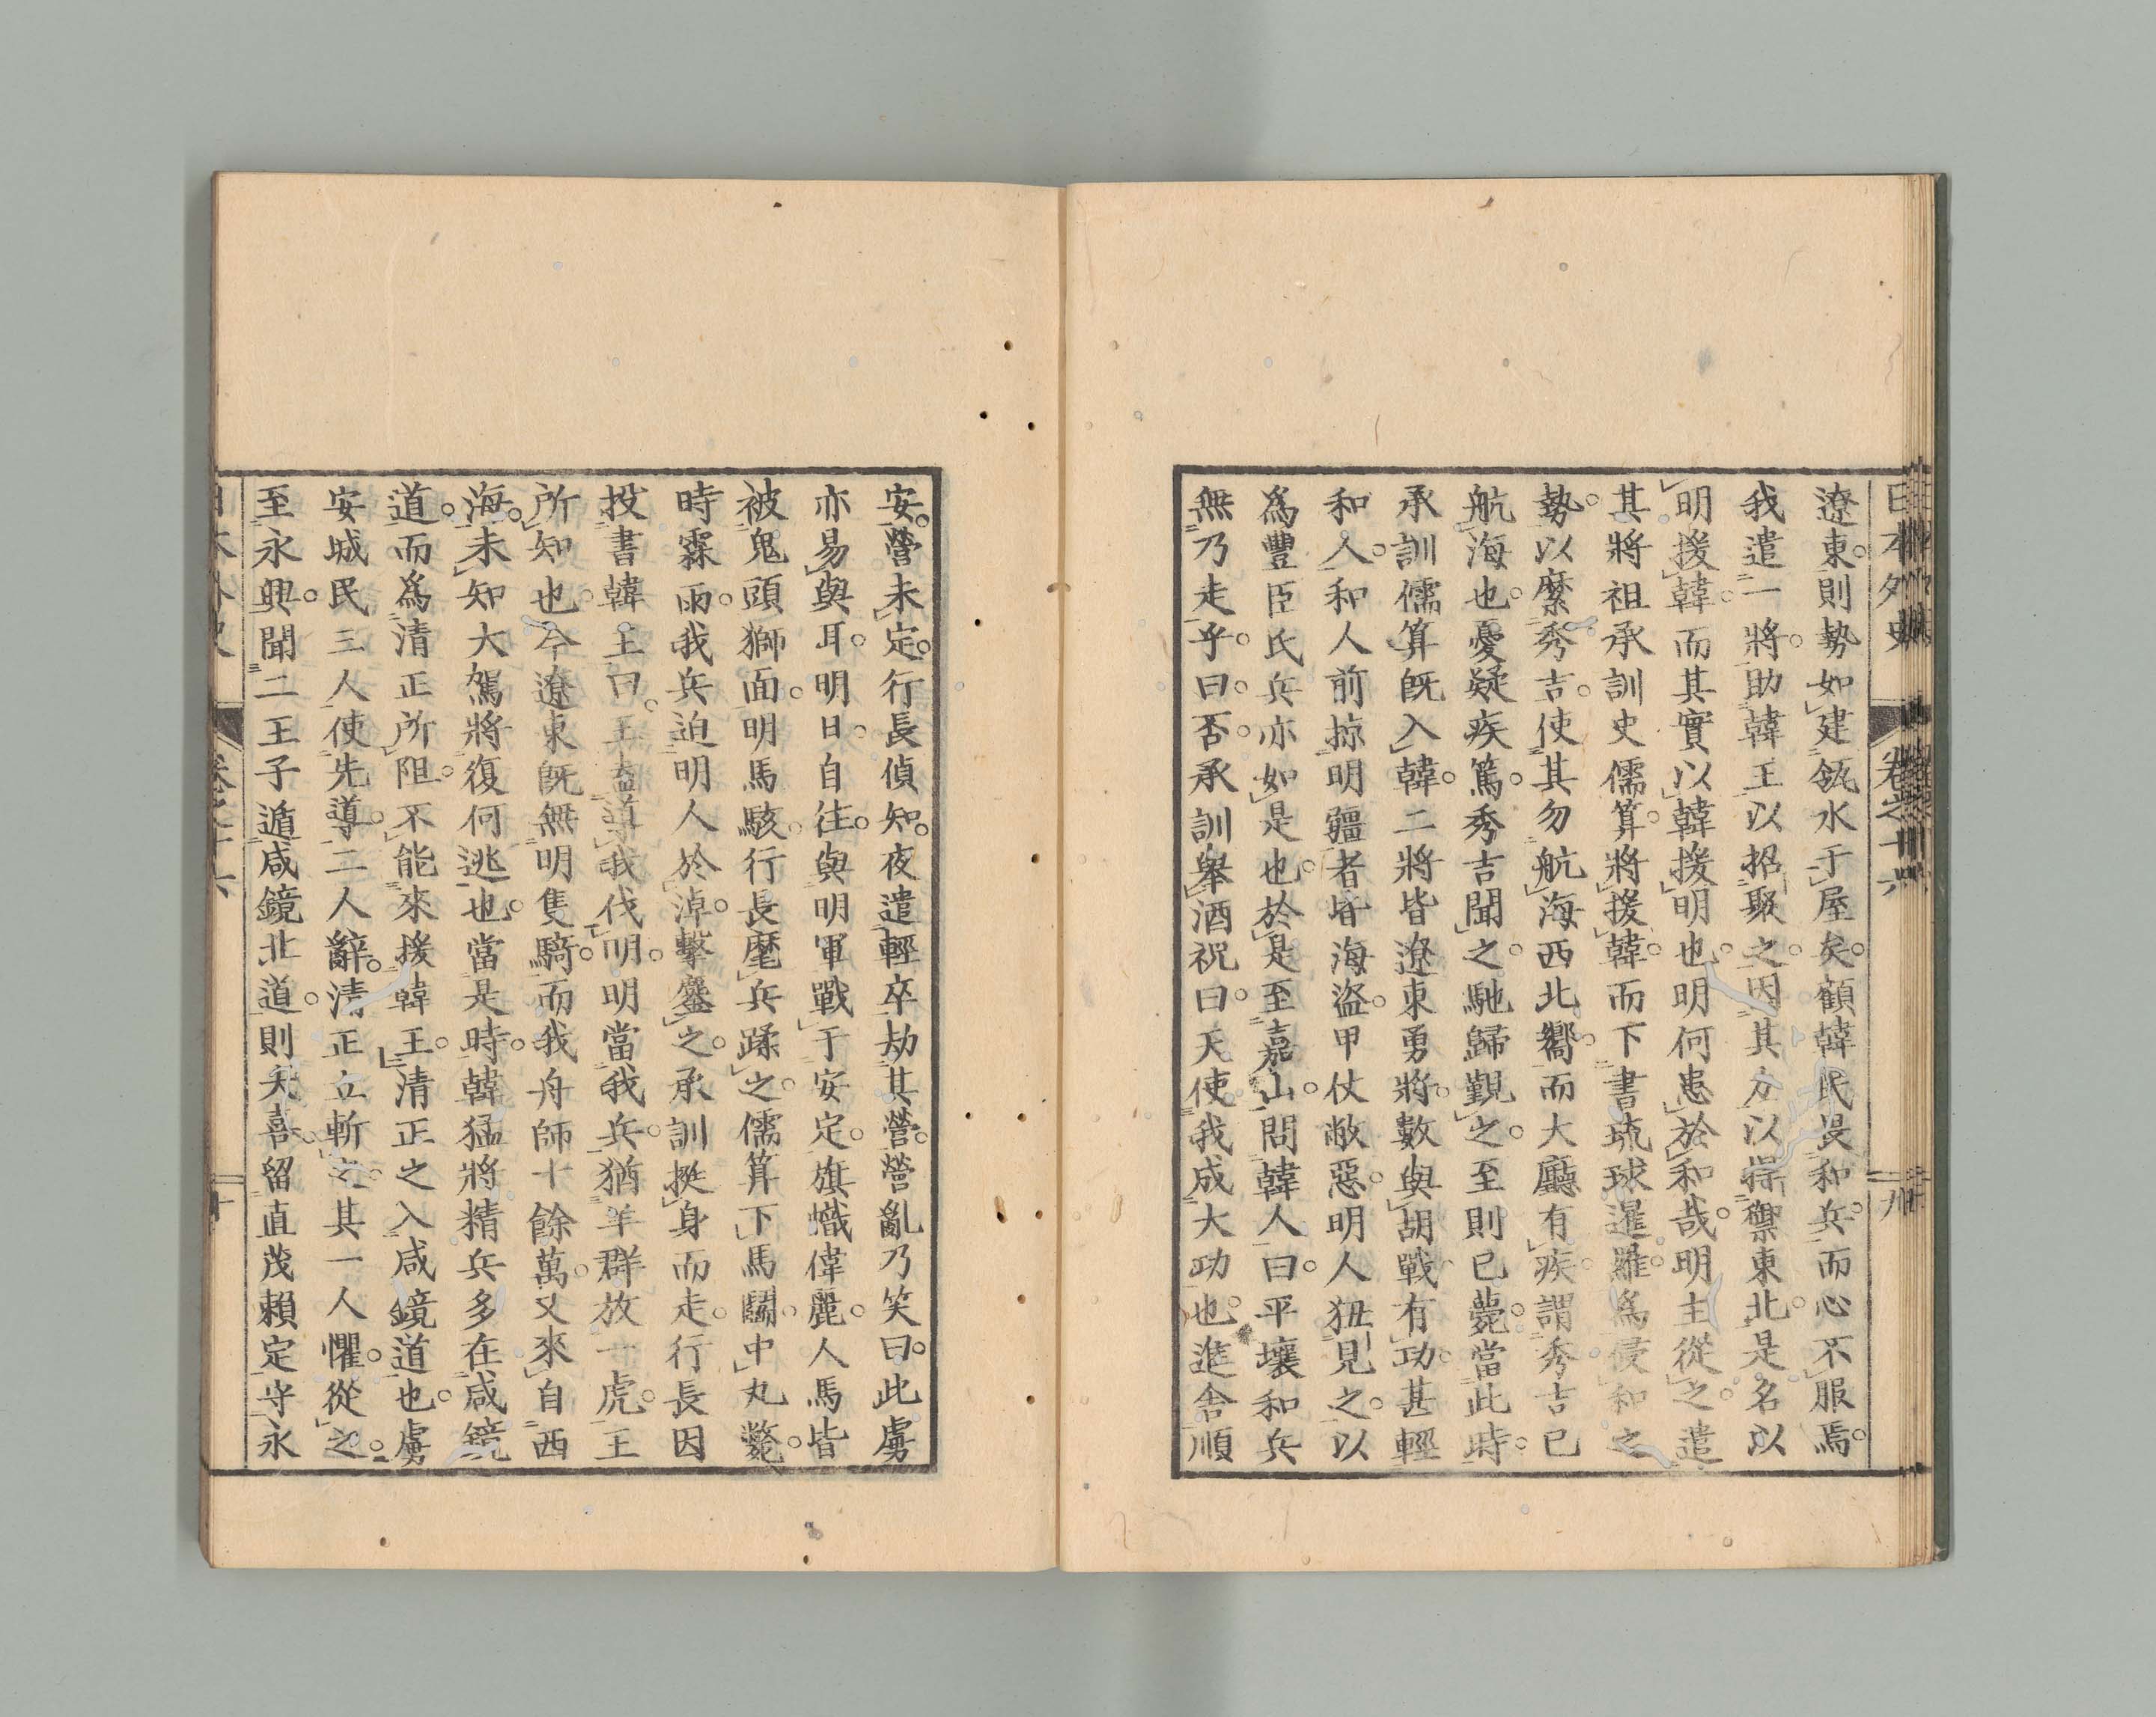 日本外史 卷之十六 九
遼東則勢如建瓴水于屋矣顧韓民畏和兵而心不服焉
我遣一將助韓王以招聚之因其力以捍禦東北是名以
明援韓而其實以韓援明也明何患於和哉明主從之遣
其將祖承訓史儒算將援韓而下書琉球暹羅爲侵和之
勢以縻秀吉使其勿航海西北嚮而大廳有疾謂秀吉已
航海也憂疑疾篤秀吉聞之馳歸覲之至則已薨當此時
承訓儒算既入韓二將皆遼東勇將數與胡戰有功甚輕
和人和人前掠明疆者皆海盜甲仗敝惡明人狃見之以
爲豐臣氏兵亦如是也於是至嘉山問韓人曰平壤和兵
無乃走乎曰否承訓舉酒祝曰天使我成大功也進舍順
安營未定行長偵知夜遣輕卒劫其營營亂乃笑曰此虜
亦易與耳明日自往與明軍戰于安定旗幟偉麗人馬皆
被鬼頭獅面明馬駭行長麾兵蹂之儒算下馬鬪中丸斃
時霖雨我兵迫明人於淖擊鏖之承訓挺身而走行長因
投書韓王曰王盍導我伐明明當我兵猶羊群放一虎王
所知也今遼東既無明隻騎而我舟師十餘萬又來自西
海未知大駕將復何逃也當是時韓猛將精兵多在咸鏡
道而爲清正所阻不能來援韓王清正之入咸鏡道也虜
安城民三人使先導二人辭清正立斬之其一人懼從之
至永興聞二王子遁咸鏡北道則大喜留直茂賴定守永
日本外史 卷之十六 十